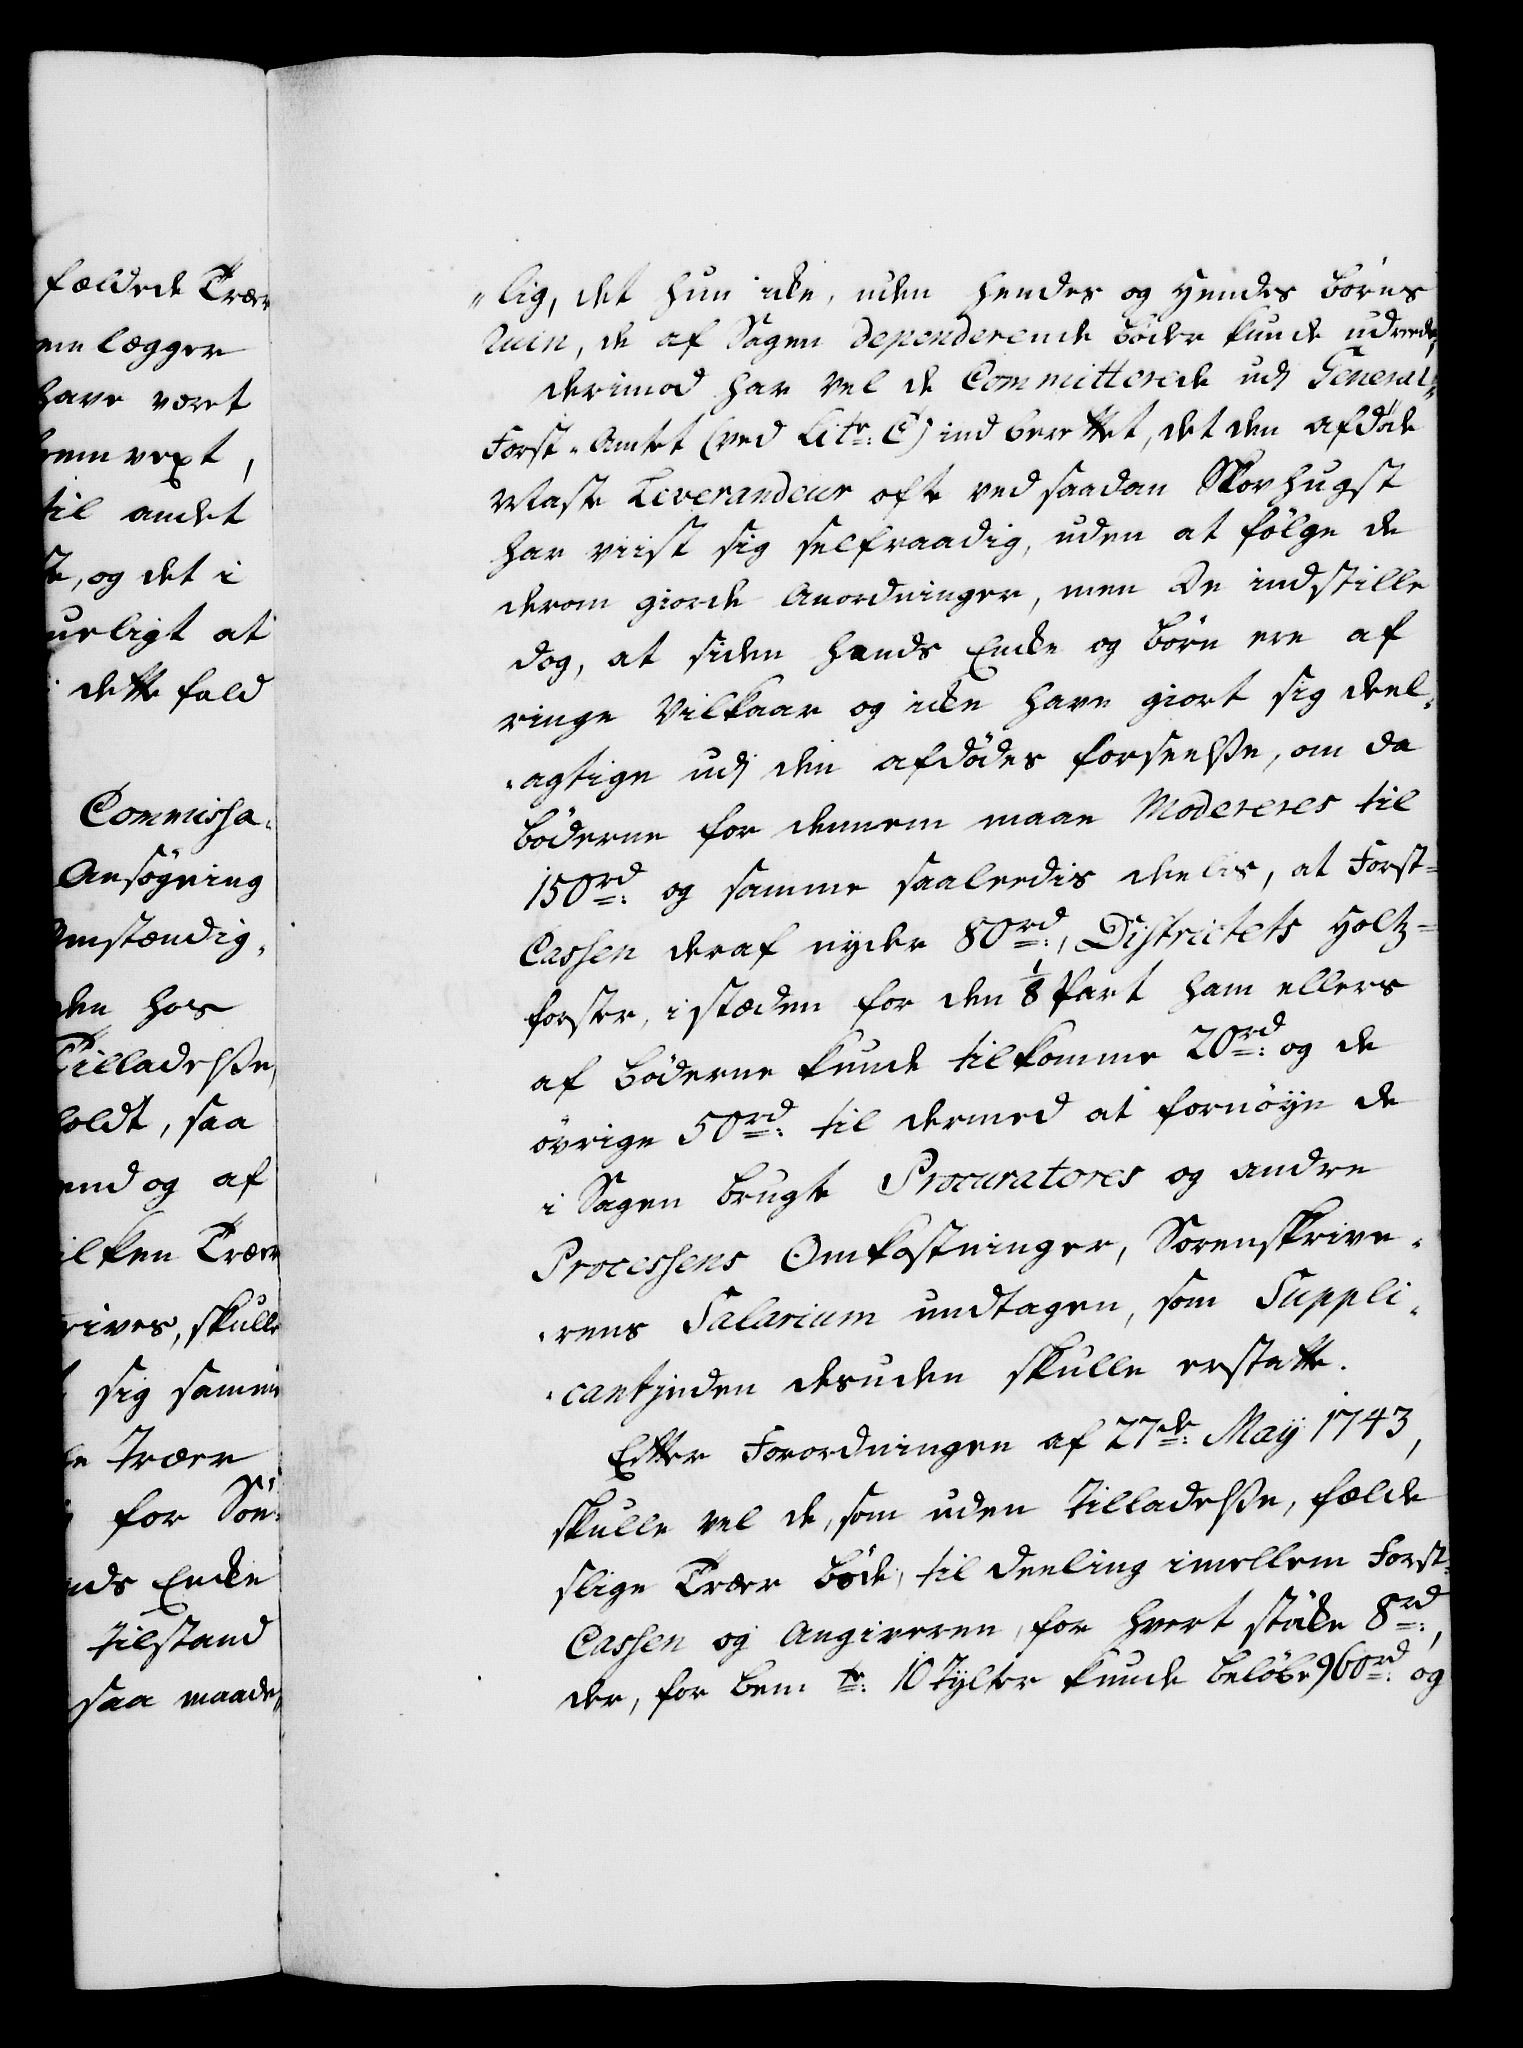 fældede Træer
lægger
have været
til andet
og det i
ueligt at
dette fald
Commissa-
Ansøgning
omstændig-
den hos
Tilladelse,
holdt, saa
end og af
ilken Træer
rives, skulle
sig samme
Træer
for
Encke
tilstand
saa maade,
"lig, det hun icke, uden hendes og hendes børns
Ruin, de af Sagen dependerende bøder kunde udreede,
derimod har vel de Committerede udj General-
Forst-Amtet (ved Litr: C) indberettet, det den afdøde
Maste Leverandeur ofte ved saadan Skovhugst
har viist sig selfraadig, uden at følge de
derom giorde Anordninger, men De indstille
dog, at siden hands Encke og børn ere af
ringe Vilkaar og icke have giort sig deel-
-agtige udj den afdødes forseelse, om da
bøderne for dennem maae Modereres til
150 rd: og samme saaleedis deeles, at Forst-
Cassen deraf nyder 80 rd:, Districtets Holtz-
forster, i stæden for den 1/8 Part ham ellers
af bøderne kunde tilkomme 20 rd: og de
øvrige 50 rd: til dermed at fornøye de
i Sagen brugte Procuratores og andre
Processens Omkostninger, Sorenskrive-
-rens Salarium undtagen, som Suppli-
-cantinden desuden skulle erstatte.
Efter Forordningen af 27de: Maij 1743,
skulle vel de, som uden Tilladelse, fælde
slige Træer bøde, til deeling imellem Forst-
Cassen og Angiveren, for hvert støcke 8 rd:,
der, for bemte: 10 Tylter kunde beløbe 960 rd: og